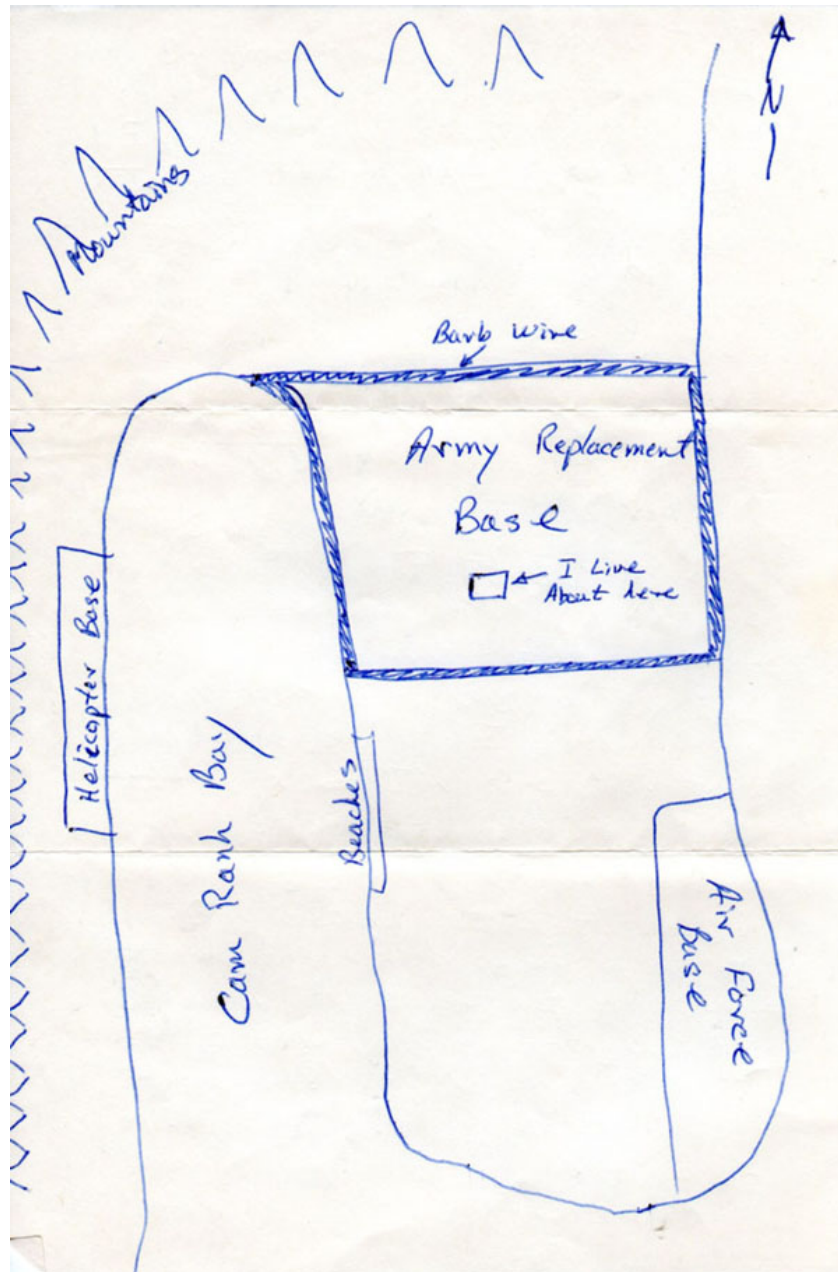 N
Mountains
Barb Wire
Army Replacement
Base
I Live
About here
Helicopter Base
Cam Ranh Bay
Beaches
Air Force
Base